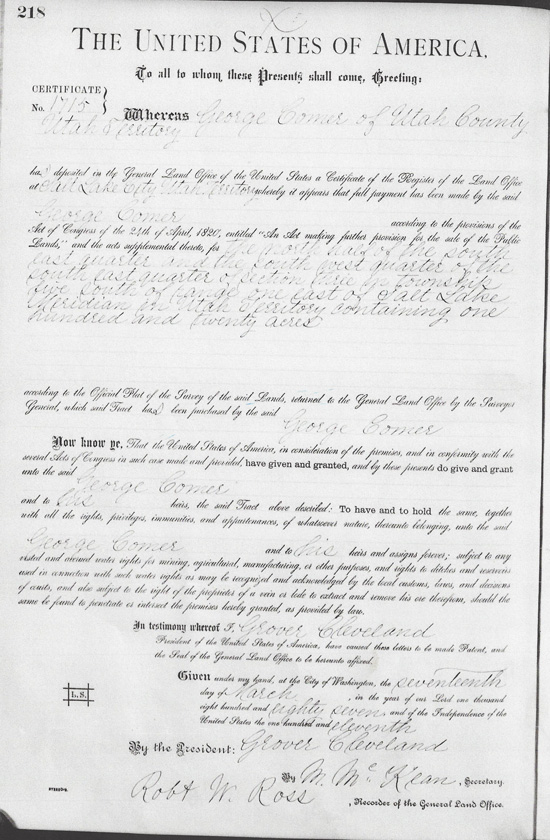 218
THE UNITED STATES OF AMERICA,
To all to whom these Presents shall come, Greeting:
CERTIFICATE
No. 1715 } Whereas George Comer of Utah County
Utah Territory
has deposited in the General Land Office of the United States a Certificate of the Register of the Land Office
at Salt Lake City Utah Territory whereby it appears that full payment has been made by the said
George Comer according to the provisions of the
Act of Congress of the 24th of April, 1820, entitled "An Act making further provision for the sale of the Public
Lands," and the acts supplemental thereto, for the north half of the south
east quarter the south west quarter of the
south east quarter of section three in township
five south of range one east of Salt Lake
Meridian in Utah Territory containing one
hundred and twenty acres
according to the Official Plat of the Survey of the said Lands, returned to the General Land Office by the Surveyor
General, which said Tract has been purchased by the said George Comer
Now know ye, That the United States of America, in consideration of the premises, and in conformity with the
several Acts of Congress in such case made and provided, have given and granted, and by these presents do give and grant
unto the said George Comer
and to his heirs, the said Tract above described: To have and to hold the same, together
with all the rights, privileges, immunities, and appurtenances, of whatsoever nature, thereunto belonging, unto the said
George Comer and to his heirs and assigns forever; subject to any
vested and accrued water rights for mining, agricultural, manufacturing, or other purposes, and rights to ditches and reservoirs
used in connection with such water rights as may be recognized and acknowledged by the local customs, laws, and decisions
of courts, and also subject to the right of the proprietor of a vein or lode to extract and remove his ore therefrom, should the
same be found to penetrate or intersect the premises hereby granted, as provided by law.
In testimony whereof I, Grover Cleveland
President of the United States of America, have caused these letters to be made Patent, and
the Seal of the General Land Office to be hereunto affixed.
Given under my hand, at the City of Washington, the seventeenth
day of March, in the year of our Lord one thousand
eight hundred and eighty seven and of the Independence of the
United States the one hundred and eleventh
L.S.
By the President: Grover Cleveland
By M. McKean, Secretary.
Robt W. Ross, Recorder of the General Land Office.